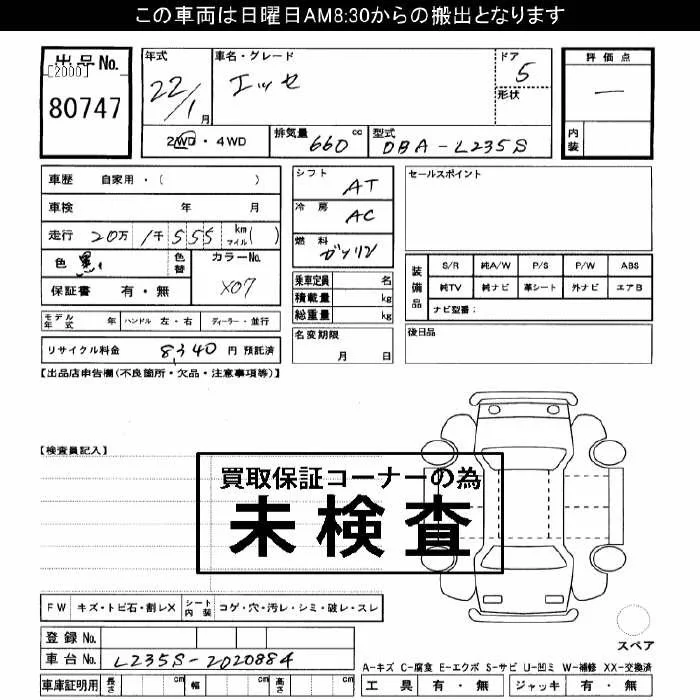 この車両は日曜日AM8:30からの搬出となります
出品No.
[2000]
80747
年式
22/1月
車名・グレード
エッセ
ドア
5
形状
評価点
—
内装
2WD・4WD
排気量 660 cc
型式 DBA-L235S
車歴 自家用・( )
車検 年 月
走行 20万 1千555 km マイル( )
色 黒
色替
カラーNo.
X07
保証書 有・無
シフト AT
冷房 AC
燃料 ガソリン
乗車定員 名
積載量 kg
総重量 kg
セールスポイント
装備品
S/R 純A/W P/S P/W ABS
純TV 純ナビ 革シート 外ナビ エアB
ナビ型番:
モデル年式 年 ハンドル 左・右 ディーラー・並行
リサイクル料金 8,340 円 預託済
名変期限
月 日
後日品
【出品店申告欄(不良箇所・欠品・注意事項等)】
【検査員記入】
買取保証コーナーの為
未検査
FW キズ・トビ石・割レX シート内装 コゲ・穴・汚レ・シミ・破レ・スレ
登録No.
車台No. L235S-2020884
車庫証明用 長さ cm 幅 cm 高さ cm
スペア
A-キズ C-腐食 E-エクボ S-サビ U-凹ミ W-補修 XX-交換済
工具 有・無 ジャッキ 有・無